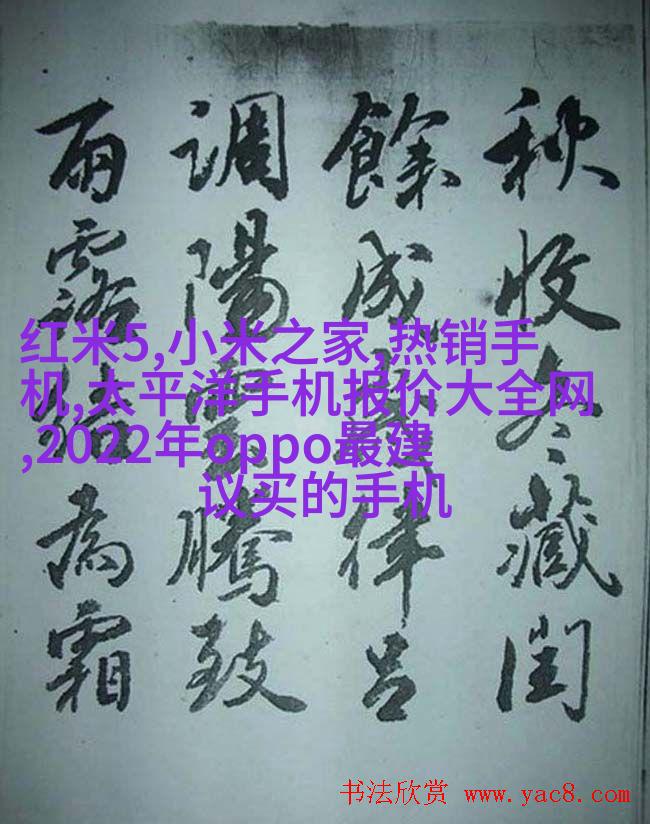 秋收冬藏闰
餘成歲律吕
调陽雲騰致
雨露结為霜
红米5,小米之家,热销手
机,太平洋手机报价大全网
,2022年oppo最建
议买的手机
书法欣赏 www.yac8.com